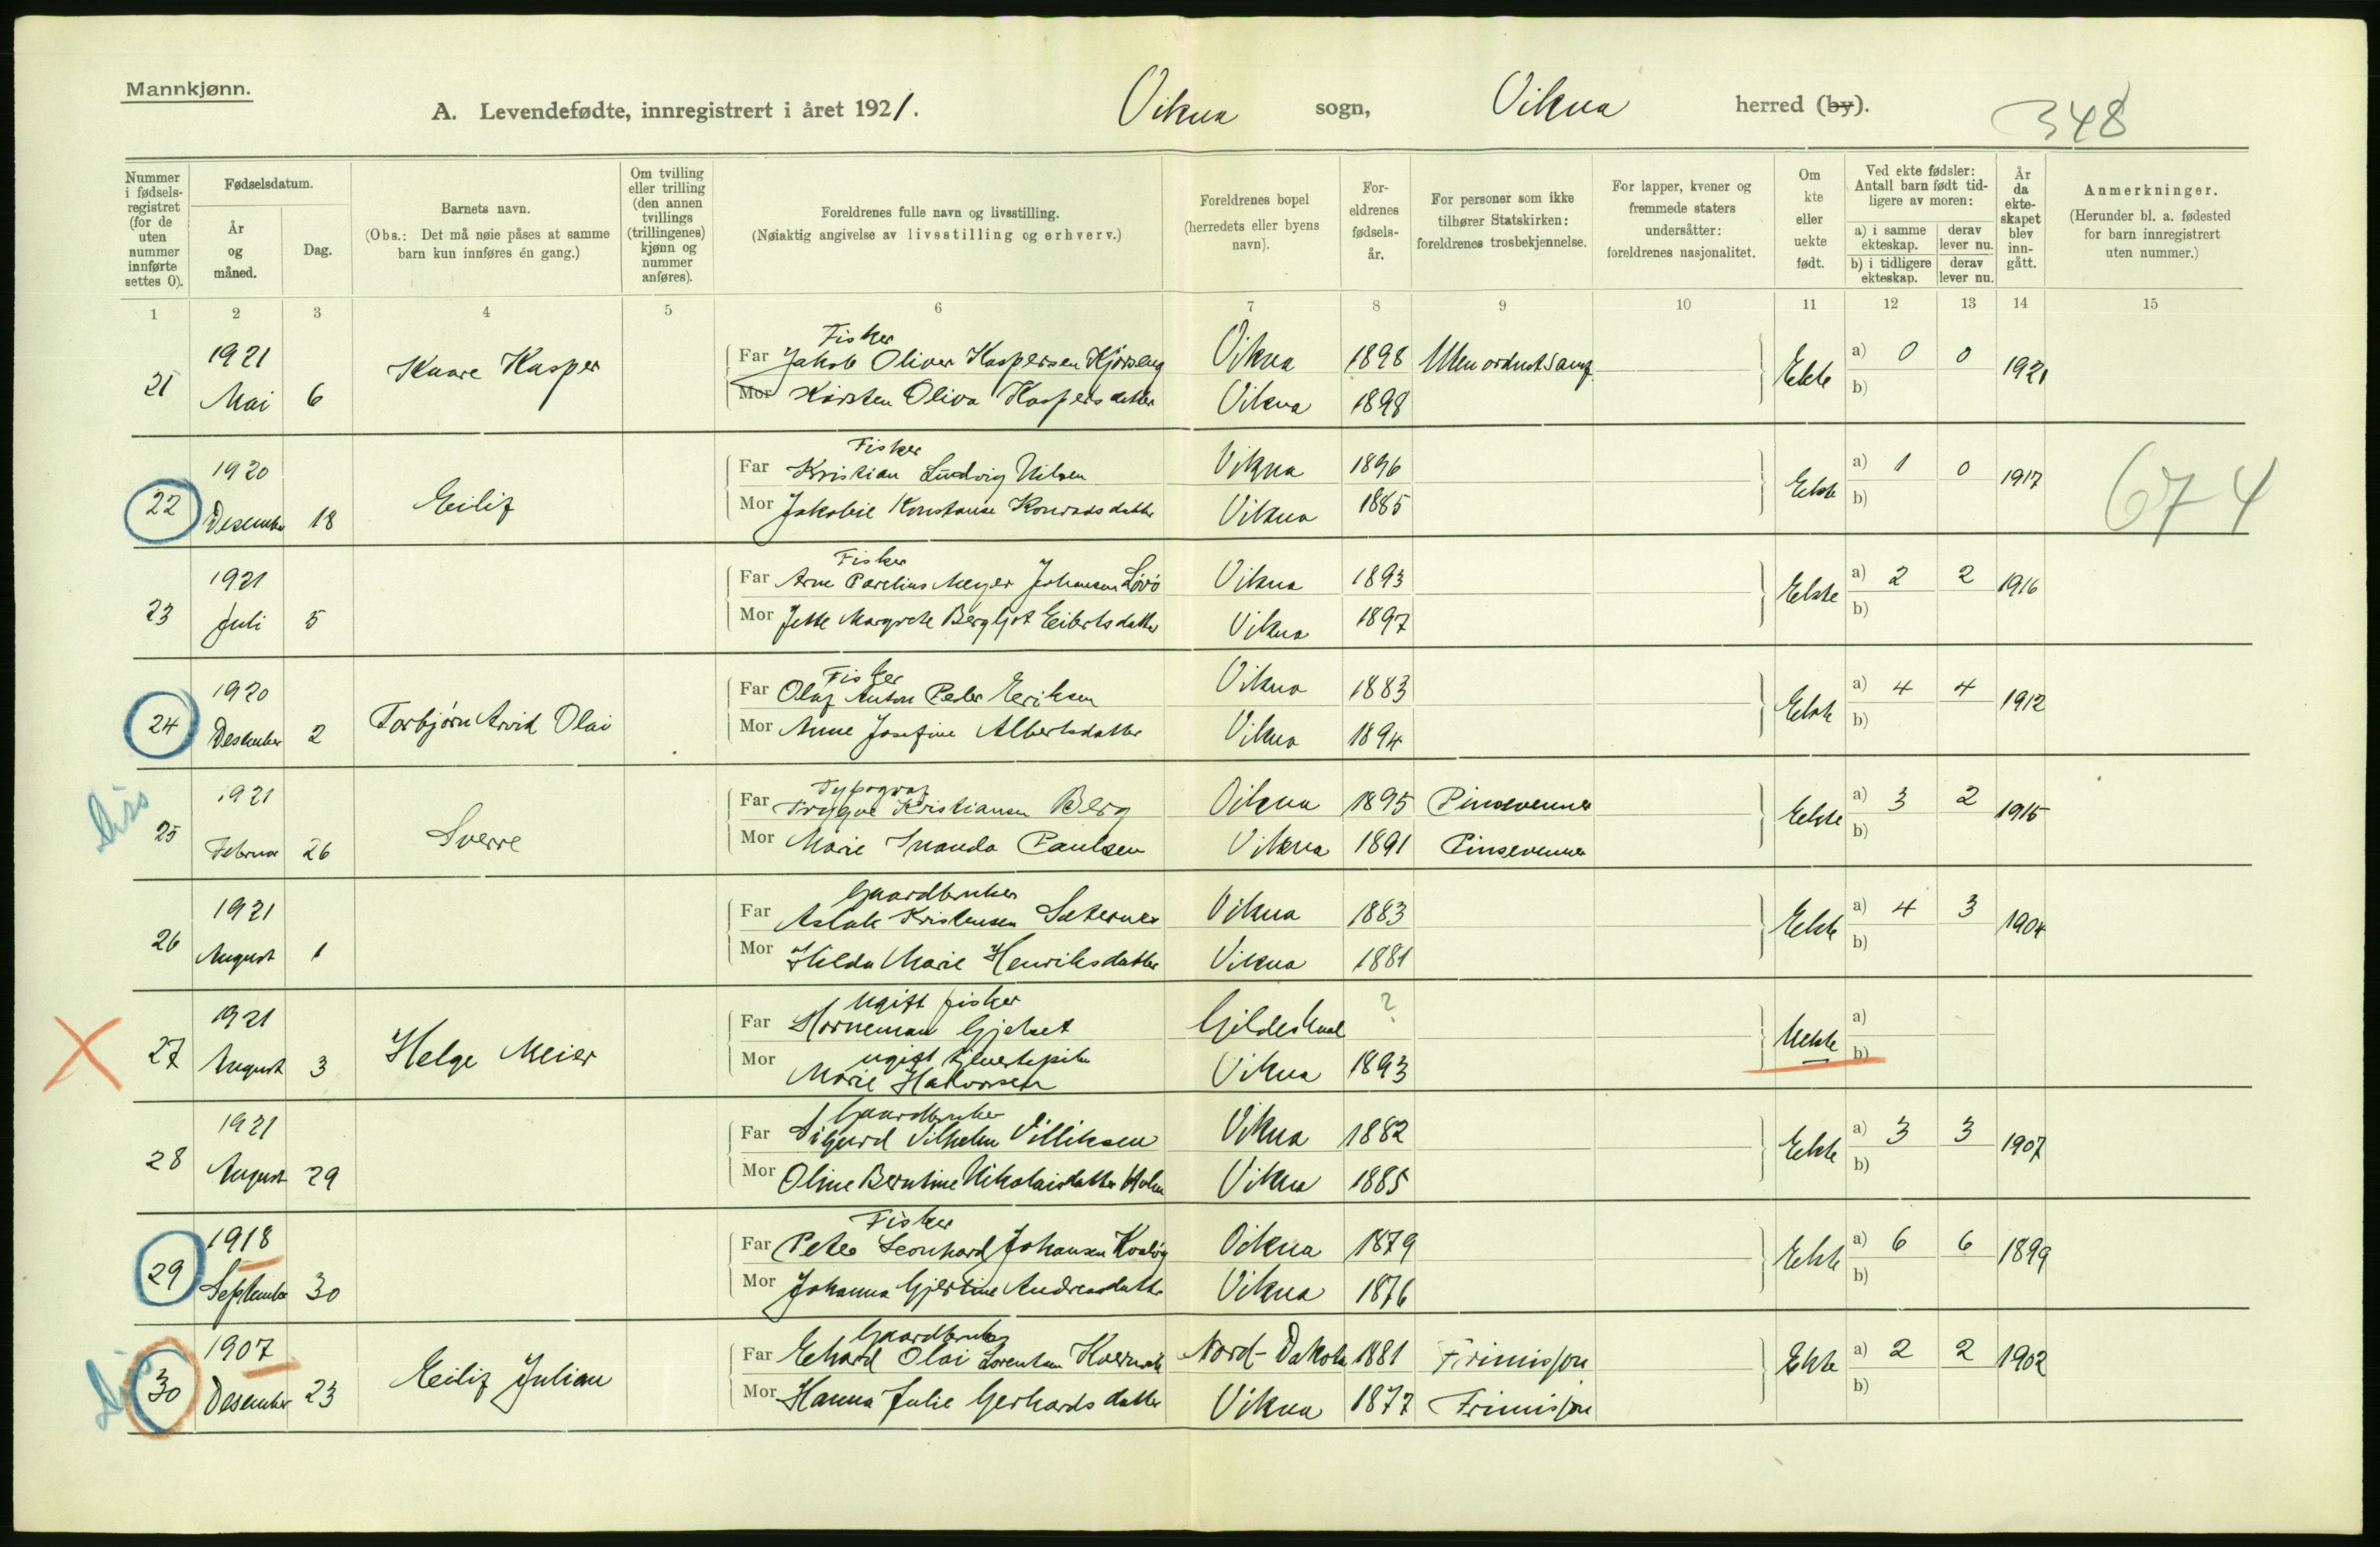 Mannkjønn.
A. Levendefødte, innregistrert i året 1921. Vikna sogn, Vikna herred (by).
348
Nummer i fødselsregistret (for de uten nummer innførte settes 0).
Fødselsdatum.
År og måned.
Dag.
Barnets navn.
(Obs.: Det må nøie påses at samme barn kun innføres én gang.)
Om tvilling eller trilling (den annen tvillings (trillingenes) kjønn og nummer anføres).
Foreldrenes fulle navn og livsstilling.
(Nøiaktig angivelse av livsstilling og erhverv.)
Foreldrenes bopel (herredets eller byens navn).
Foreldrenes fødselsår.
For personer som ikke tilhører Statskirken: foreldrenes trosbekjennelse.
For lapper, kvener og fremmede staters undersåtter: foreldrenes nasjonalitet.
Om kte eller uekte født.
Ved ekte fødsler: Antall barn født tidligere av moren:
a) i samme ekteskap. derav lever nu.
b) i tidligere ekteskap. derav lever nu.
År da ekteskapet blev inngått.
Anmerkninger.
(Herunder bl. a. fødested for barn innregistrert uten nummer.)
1 2 3 4 5 6 7 8 9 10 11 12 13 14 15
Fisker
21 1921 Mai 6 Kaare Kasper Far Jakob Oliver Kaspersen Vikna 1898 Ekte a) 0 0 1921
Mor Oliva Kaspersdatter Vikna 1898 b)
Fisker
22 1920 Desember 18 Eilif Far Kristian Ludvig Nilsen Vikna 1896 Ekte a) 1 0 1917
Mor Jakobie Konstanse Konradsdatter Vikna 1885 b)
674
Fisker
23 1921 Juli 5 Far Arne Parelius Meyer Johansen Lövö Vikna 1893 Ekte a) 2 2 1916
Mor Jette Margrete Bergljot Eibertsdatter Vikna 1897 b)
Fisker
24 1920 Desember 2 Torbjørn Arvid Olai Far Olaf Anton Peder Eriksen Vikna 1883 Ekte a) 4 4 1912
Mor Anne Josefine Albertsdatter Vikna 1894 b)
Diss
Typograf
25 1921 Februar 26 Sverre Far Trygve Kristiansen Berg Vikna 1895 Pinsevenner Ekte a) 3 2 1915
Mor Marie Inanda Paulsen Vikna 1891 Pinsevenner b)
Gaardbruker
26 1921 August 1 Far Aslak Kristensen Sæternes Vikna 1883 Ekte a) 4 3 1904
Mor Hilda Marie Henriksdatter Vikna 1881 b)
Ugift fisker
27 1921 August 3 Helge Meier Far Horneman Gjelset Gildeskaal ? Uekte a)
Mor ugift
Marie Halvorsen Vikna 1893 b)
Gaardbruker
28 1921 August 29 Far Sigurd Vilhelm Villiksen Vikna 1882 Ekte a) 3 3 1907
Mor Oline Berntine Nikolaisdatter Holm Vikna 1885 b)
Fisker
29 1918 September 30 Far Peter Leonhard Johansen Vikna 1879 Ekte a) 6 6 1899
Mor Johanna Gjertine Andreasdatter Vikna 1876 b)
Gaardbruker
30 1907 Desember 23 Eilif Julian Far Olai Lorentsen Nord-Dakota 1881 Frimisjon Ekte a) 2 2 1902
Mor Hanna Julie Gerhardsdatter Vikna 1877 Frimisjon b)